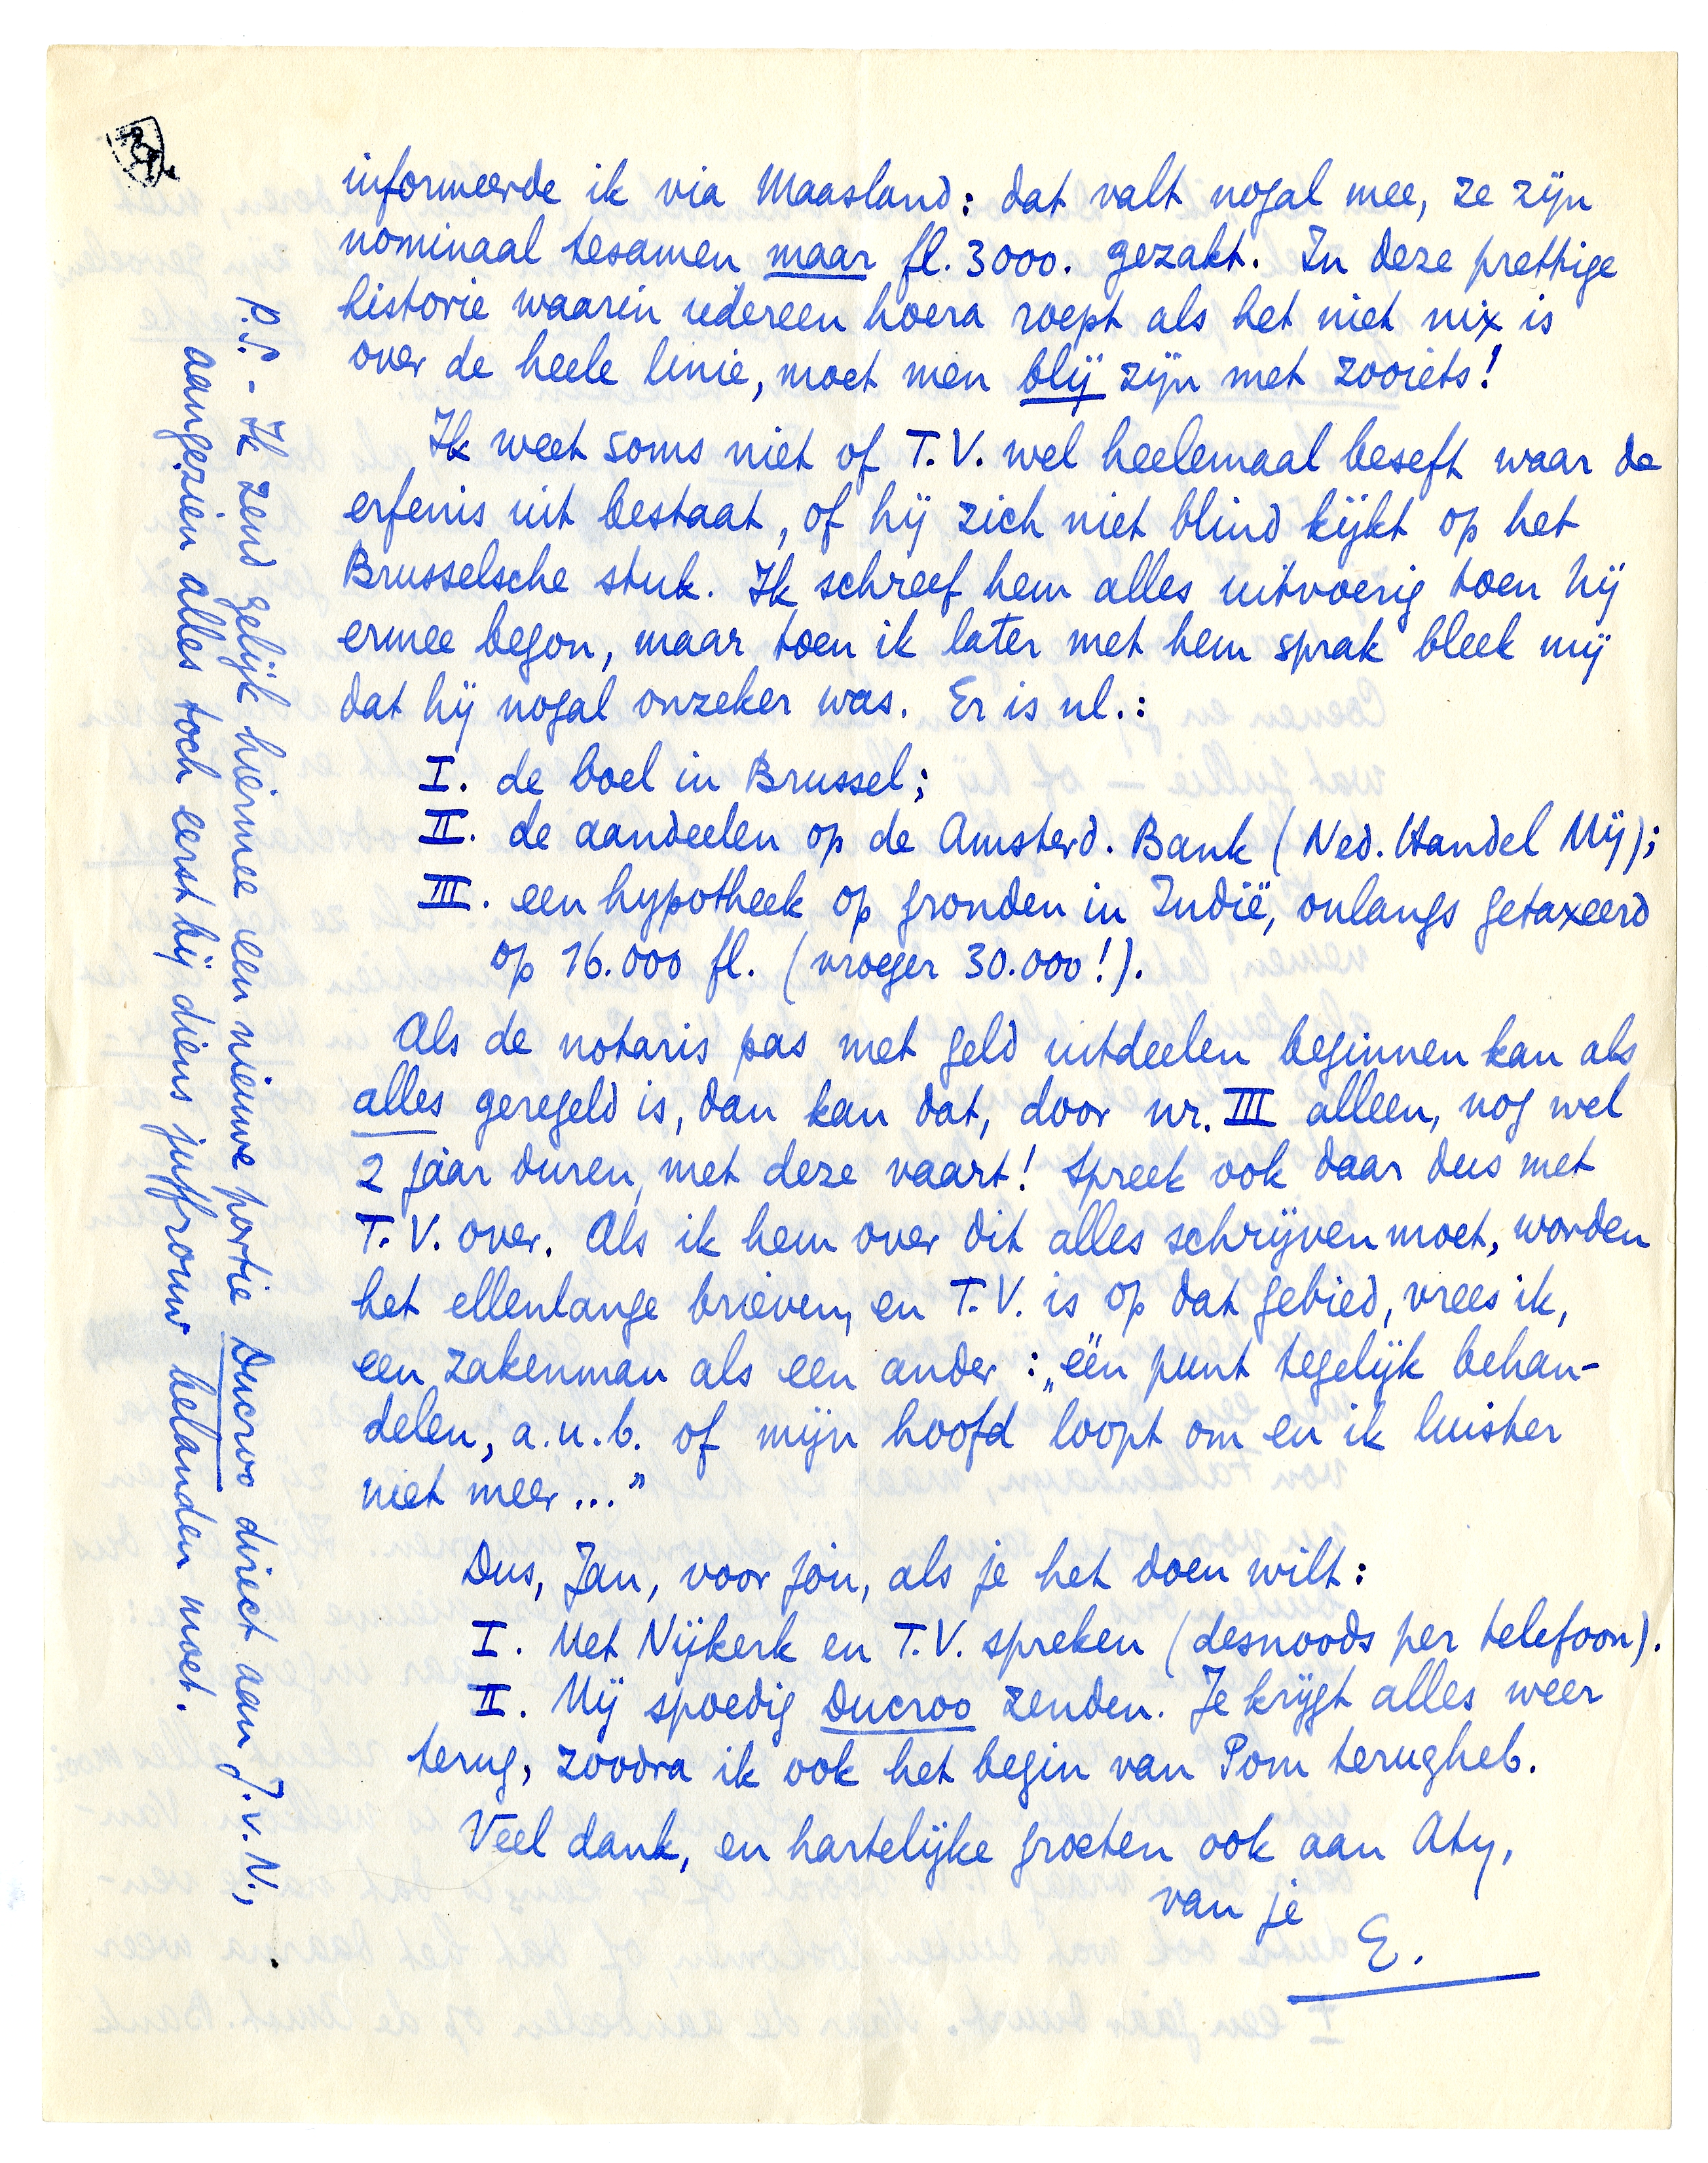 informeerde ik via Maasland: dat valt nogal mee, ze zijn
nominaal tesamen maar fl. 3000. gezakt. In deze prettige
historie waarin iedereen hoera roept als het niet nix is
over de heele linie, moet men blij zijn met zooiets!
Ik weet soms niet of T.V. wel heelemaal beseft waar de
erfenis uit bestaat, of hij zich niet blind kijkt op het
Brusselsche stuk. Ik schreef hem alles uitvoerig toen hij
ermee begon, maar toen ik later met hem sprak bleek mij
dat hij nogal onzeker was. Er is nl.:
I. de boel in Brussel;
II. de aandeelen op de Amsterd. Bank (Ned. Handel Mij);
III. een hypotheek op gronden in Indië, onlangs getaxeerd
op 16.000 fl. (vroeger 30.000!).
Als de notaris pas met geld uitdeelen beginnen kan als
alles geregeld is, dan kan dat, door nr. III alleen, nog wel
2 jaar duren, met deze vaart! Spreek ook daar dus met
T.V. over. Als ik hem over dit alles schrijven moet, worden
het ellenlange brieven, en T.V. is op dat gebied, vrees ik,
een zakenman als een ander: „één punt tegelijk behan-
delen, a.u.b. of mijn hoofd loopt om en ik luister
niet meer..."
Dus, Jan, voor jòu, als je het doen wilt:
I. Met Nijkerk en T.V. spreken (desnoods per telefoon).
II. Mij spoedig Ducroo zenden. Je krijgt alles weer
terug, zoodra ik ook het begin van Pom terugheb.
Veel dank, en hartelijke groeten ook aan Aty,
van je
E.
P.S. - Ik zend gelijk hiermee een nieuwe portie Ducroo direct aan J.v.N.,
aangezien alles toch eerst bij diens juffrouw belanden moet.